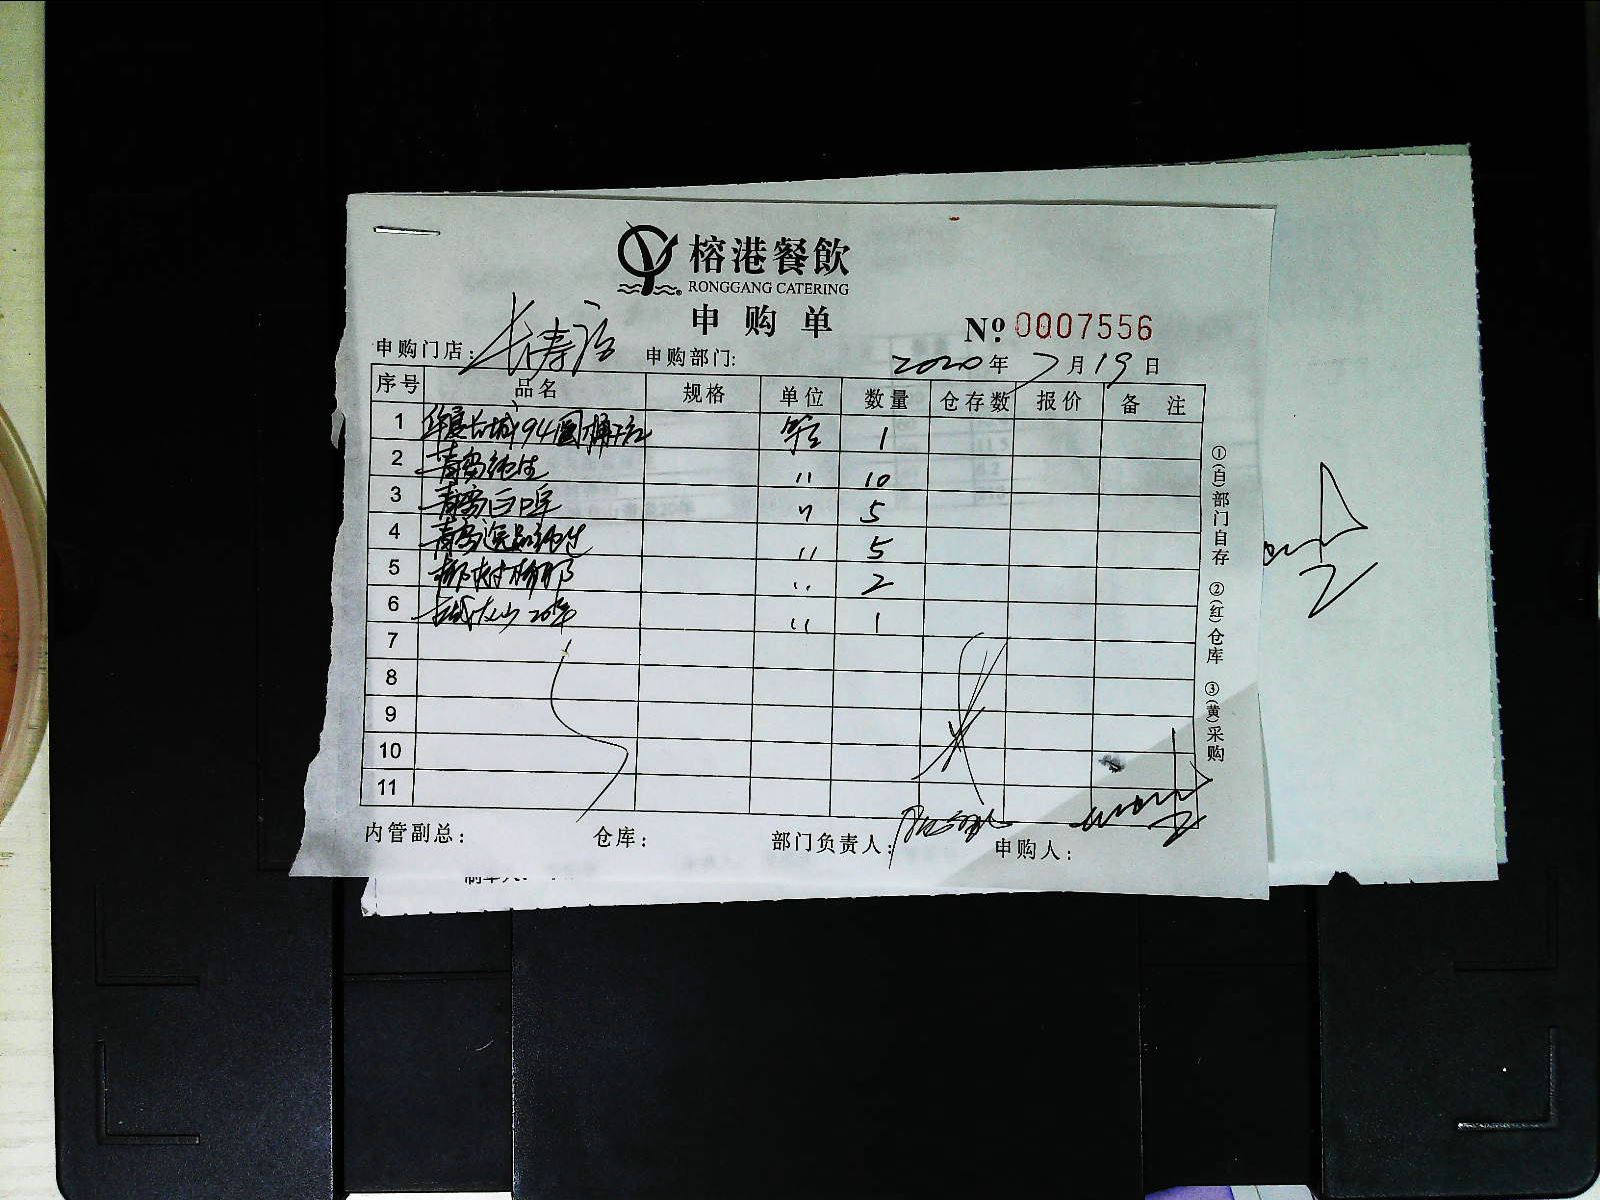 榕港餐飲
RONGGANG CATERING
申购单
Nº 0007556
申购门店: 长寿店 申购部门: 2020年7月19日
序号 品名 规格 单位 数量 仓存数 报价 备注
1 华夏长城94 1
2 青岛纯生 〃 10
3 青岛白啤 〃 5
4 青岛逸品纯生 〃 5
5 椰树椰 〃 2
6 20年 〃 1
7
8
9
10
11
内管副总: 仓库: 部门负责人: 申购人:
①(白)部门自存 ②(红)仓库 ③(黄)采购